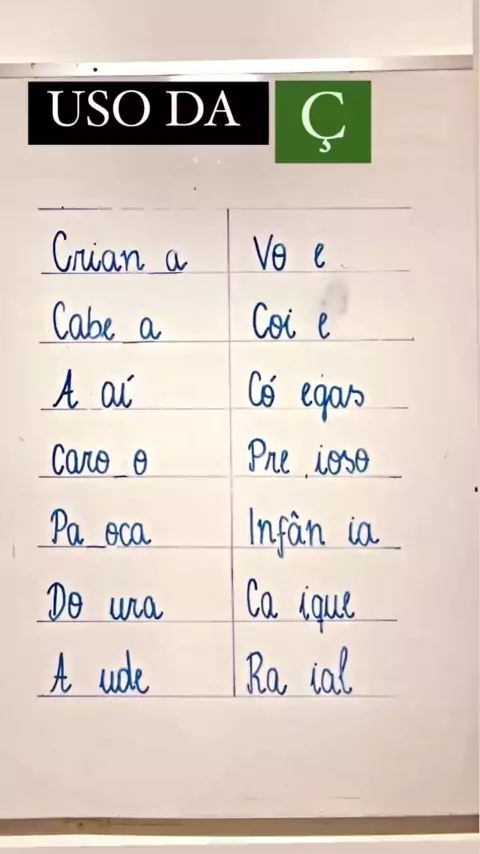 USO DA Ç
Crian a Vo e
Cabe a Coi e
A aí Có egas
Caro o Pre ioso
Pa oca Infân ia
Do ura Ca ique
A ude Ra ial